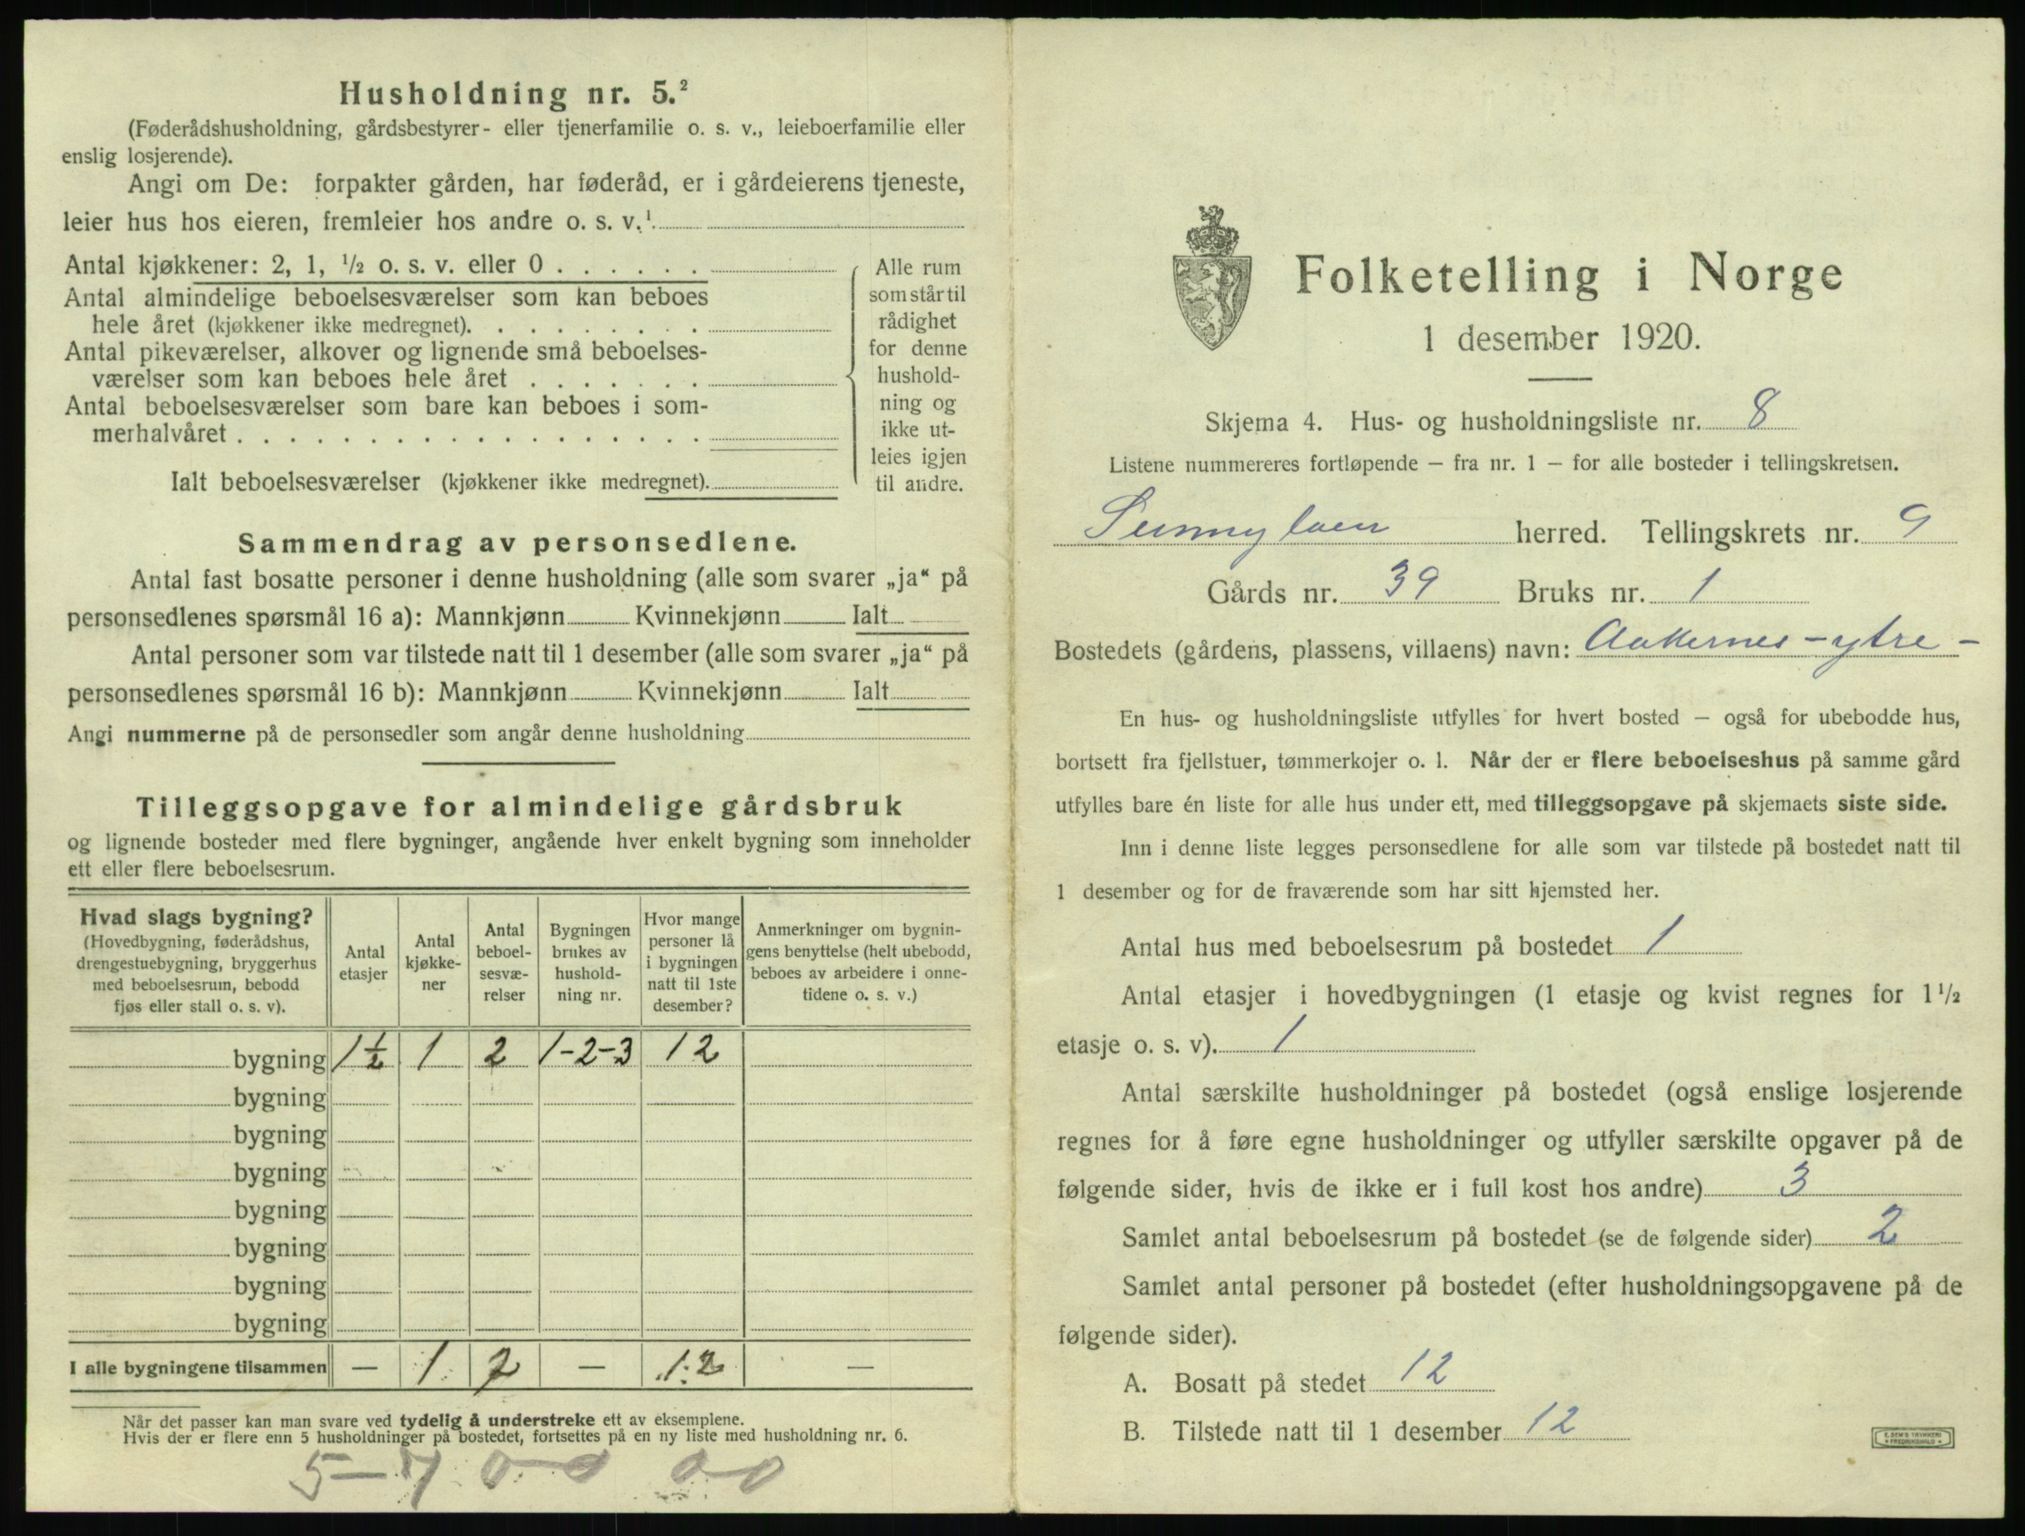 Husholdning nr. 5.²
(Føderådshusholdning, gårdsbestyrer- eller tjenerfamilie o. s. v., leieboerfamilie eller
enslig losjerende).
Angi om De: forpakter gården, har føderåd, er i gårdeierens tjeneste,
leier hus hos eieren, fremleier hos andre o. s. v.¹
Antal kjøkkener: 2, 1, ½ o. s. v. eller 0 . . . . . .
Antal almindelige beboelsesværelser som kan beboes
hele året (kjøkkener ikke medregnet). . . . . . . . .
Antal pikeværelser, alkover og lignende små beboelses-
værelser som kan beboes hele året . . . . . . .
Antal beboelsesværelser som bare kan beboes i som-
merhalvåret . . . . . . . . . . . . . . . . . .
Ialt beboelsesværelser (kjøkkener ikke medregnet).
Alle rum
som står til
rådighet
for denne
hushold-
ning og
ikke ut-
leies igjen
til andre.
Sammendrag av personsedlene.
Antal fast bosatte personer i denne husholdning (alle som svarer „ja“ på
personsedlenes spørsmål 16 a): Mannkjønn Kvinnekjønn Ialt
Antal personer som var tilstede natt til 1 desember (alle som svarer „ja“ på
personsedlenes spørsmål 16 b): Mannkjønn Kvinnekjønn Ialt
Angi nummerne på de personsedler som angår denne husholdning
Tilleggsopgave for almindelige gårdsbruk
og lignende bosteder med flere bygninger, angående hver enkelt bygning som inneholder
ett eller flere beboelsesrum.
Hvad slags bygning?
(Hovedbygning, føderådshus,
drengestuebygning, bryggerhus
med beboelsesrum, bebodd
fjøs eller stall o. s. v).
Antal
etasjer
Antal
kjøkke-
ner
Antal
beboel-
sesvæ-
relser
Bygningen
brukes av
hushold-
ning nr.
Hvor mange
personer lå
i bygningen
natt til 1ste
desember?
Anmerkninger om bygnin-
gens benyttelse (helt ubebodd,
beboes av arbeidere i onne-
tidene o. s. v.)
bygning 1½ 1 2 1-2-3 12
bygning
bygning
bygning
bygning
bygning
bygning
bygning
I alle bygningene tilsammen — 1 2 — 12 —
Når det passer kan man svare ved tydelig å understreke ett av eksemplene.
Hvis der er flere enn 5 husholdninger på bostedet, fortsettes på en ny liste med husholdning nr. 6.
Folketelling i Norge
1 desember 1920.
Skjema 4. Hus- og husholdningsliste nr. 8
Listene nummereres fortløpende – fra nr. 1 – for alle bosteder i tellingskretsen.
Sunnylven herred. Tellingskrets nr. 9
Gårds nr. 39 Bruks nr. 1
Bostedets (gårdens, plassens, villaens) navn: Aakernes-ytre-
En hus- og husholdningsliste utfylles for hvert bosted – også for ubebodde hus,
bortsett fra fjellstuer, tømmerkojer o. l. Når der er flere beboelseshus på samme gård
utfylles bare én liste for alle hus under ett, med tilleggsopgave på skjemaets siste side.
Inn i denne liste legges personsedlene for alle som var tilstede på bostedet natt til
1 desember og for de fraværende som har sitt hjemsted her.
Antal hus med beboelsesrum på bostedet 1
Antal etasjer i hovedbygningen (1 etasje og kvist regnes for 1½
etasje o. s. v). 1
Antal særskilte husholdninger på bostedet (også enslige losjerende
regnes for å føre egne husholdninger og utfyller særskilte opgaver på de
følgende sider, hvis de ikke er i full kost hos andre) 3
Samlet antal beboelsesrum på bostedet (se de følgende sider) 2
Samlet antal personer på bostedet (efter husholdningsopgavene på de
følgende sider).
A. Bosatt på stedet 12
B. Tilstede natt til 1 desember 12
E. SEM'S TRYKKERI
FREDRIKSHALD